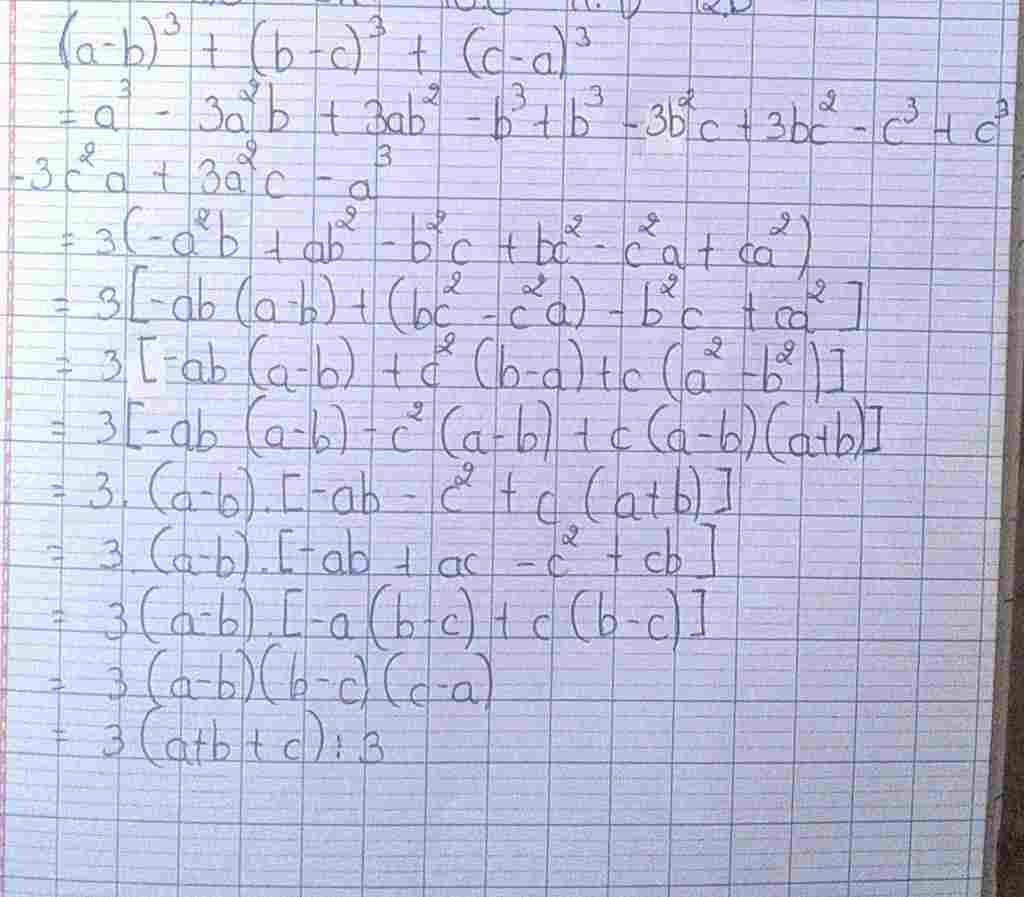 (a-b)³ + (b-c)³ + (c-a)³
= a³ - 3a²b + 3ab² - b³ + b³ - 3b²c + 3bc² - c³ + c³
-3c²a + 3a²c - a³
= 3(-a²b + ab² - b²c + bc² - c²a + ca²)
= 3[-ab(a-b) + (bc² - c²a) - b²c + ca²]
= 3[-ab(a-b) + c²(b-a) + c(a²-b²)]
= 3[-ab(a-b) - c²(a-b) + c(a-b)(a+b)]
= 3.(a-b).[-ab - c² + c(a+b)]
= 3.(a-b).[-ab + ac - c² + cb]
= 3(a-b).[-a(b-c) + c(b-c)]
= 3(a-b)(b-c)(c-a)
= 3(a+b+c):3